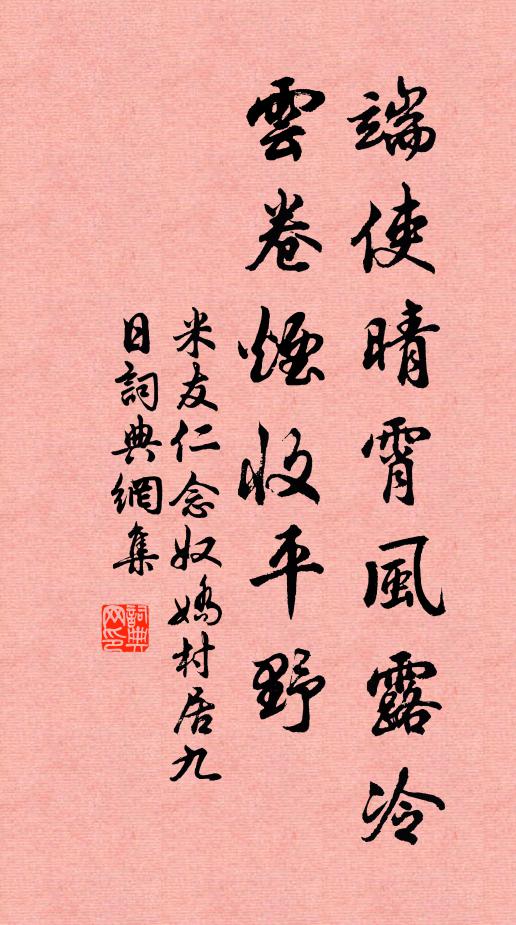 端使晴霄風露冷
雲卷煙收平野
米友仁念奴嬌村居九
日詞典網集
詞典網印